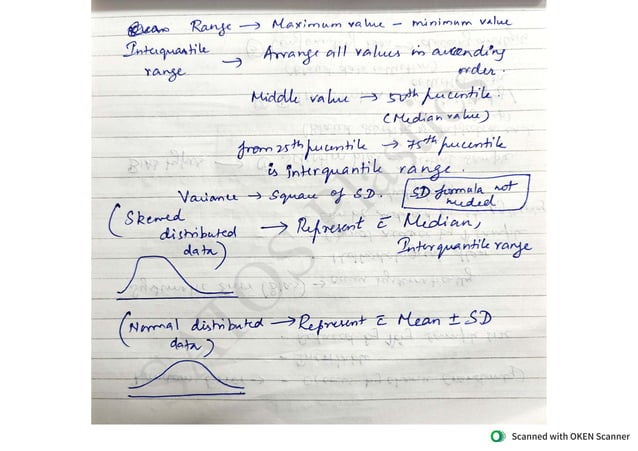 Range → Maximum value - minimum value
Interquartile range → Arrange all values in ascending order.
Middle value → 50th percentile.
(Median value)
from 25th percentile → 75th percentile
is interquantile range.
Variance → Square of SD. SD formula not needed
(Skewed distributed data) → Represent c̄ Median, Interquantile range
(Normal distributed data) → Represent c̄ Mean ± SD
Scanned with OKEN Scanner